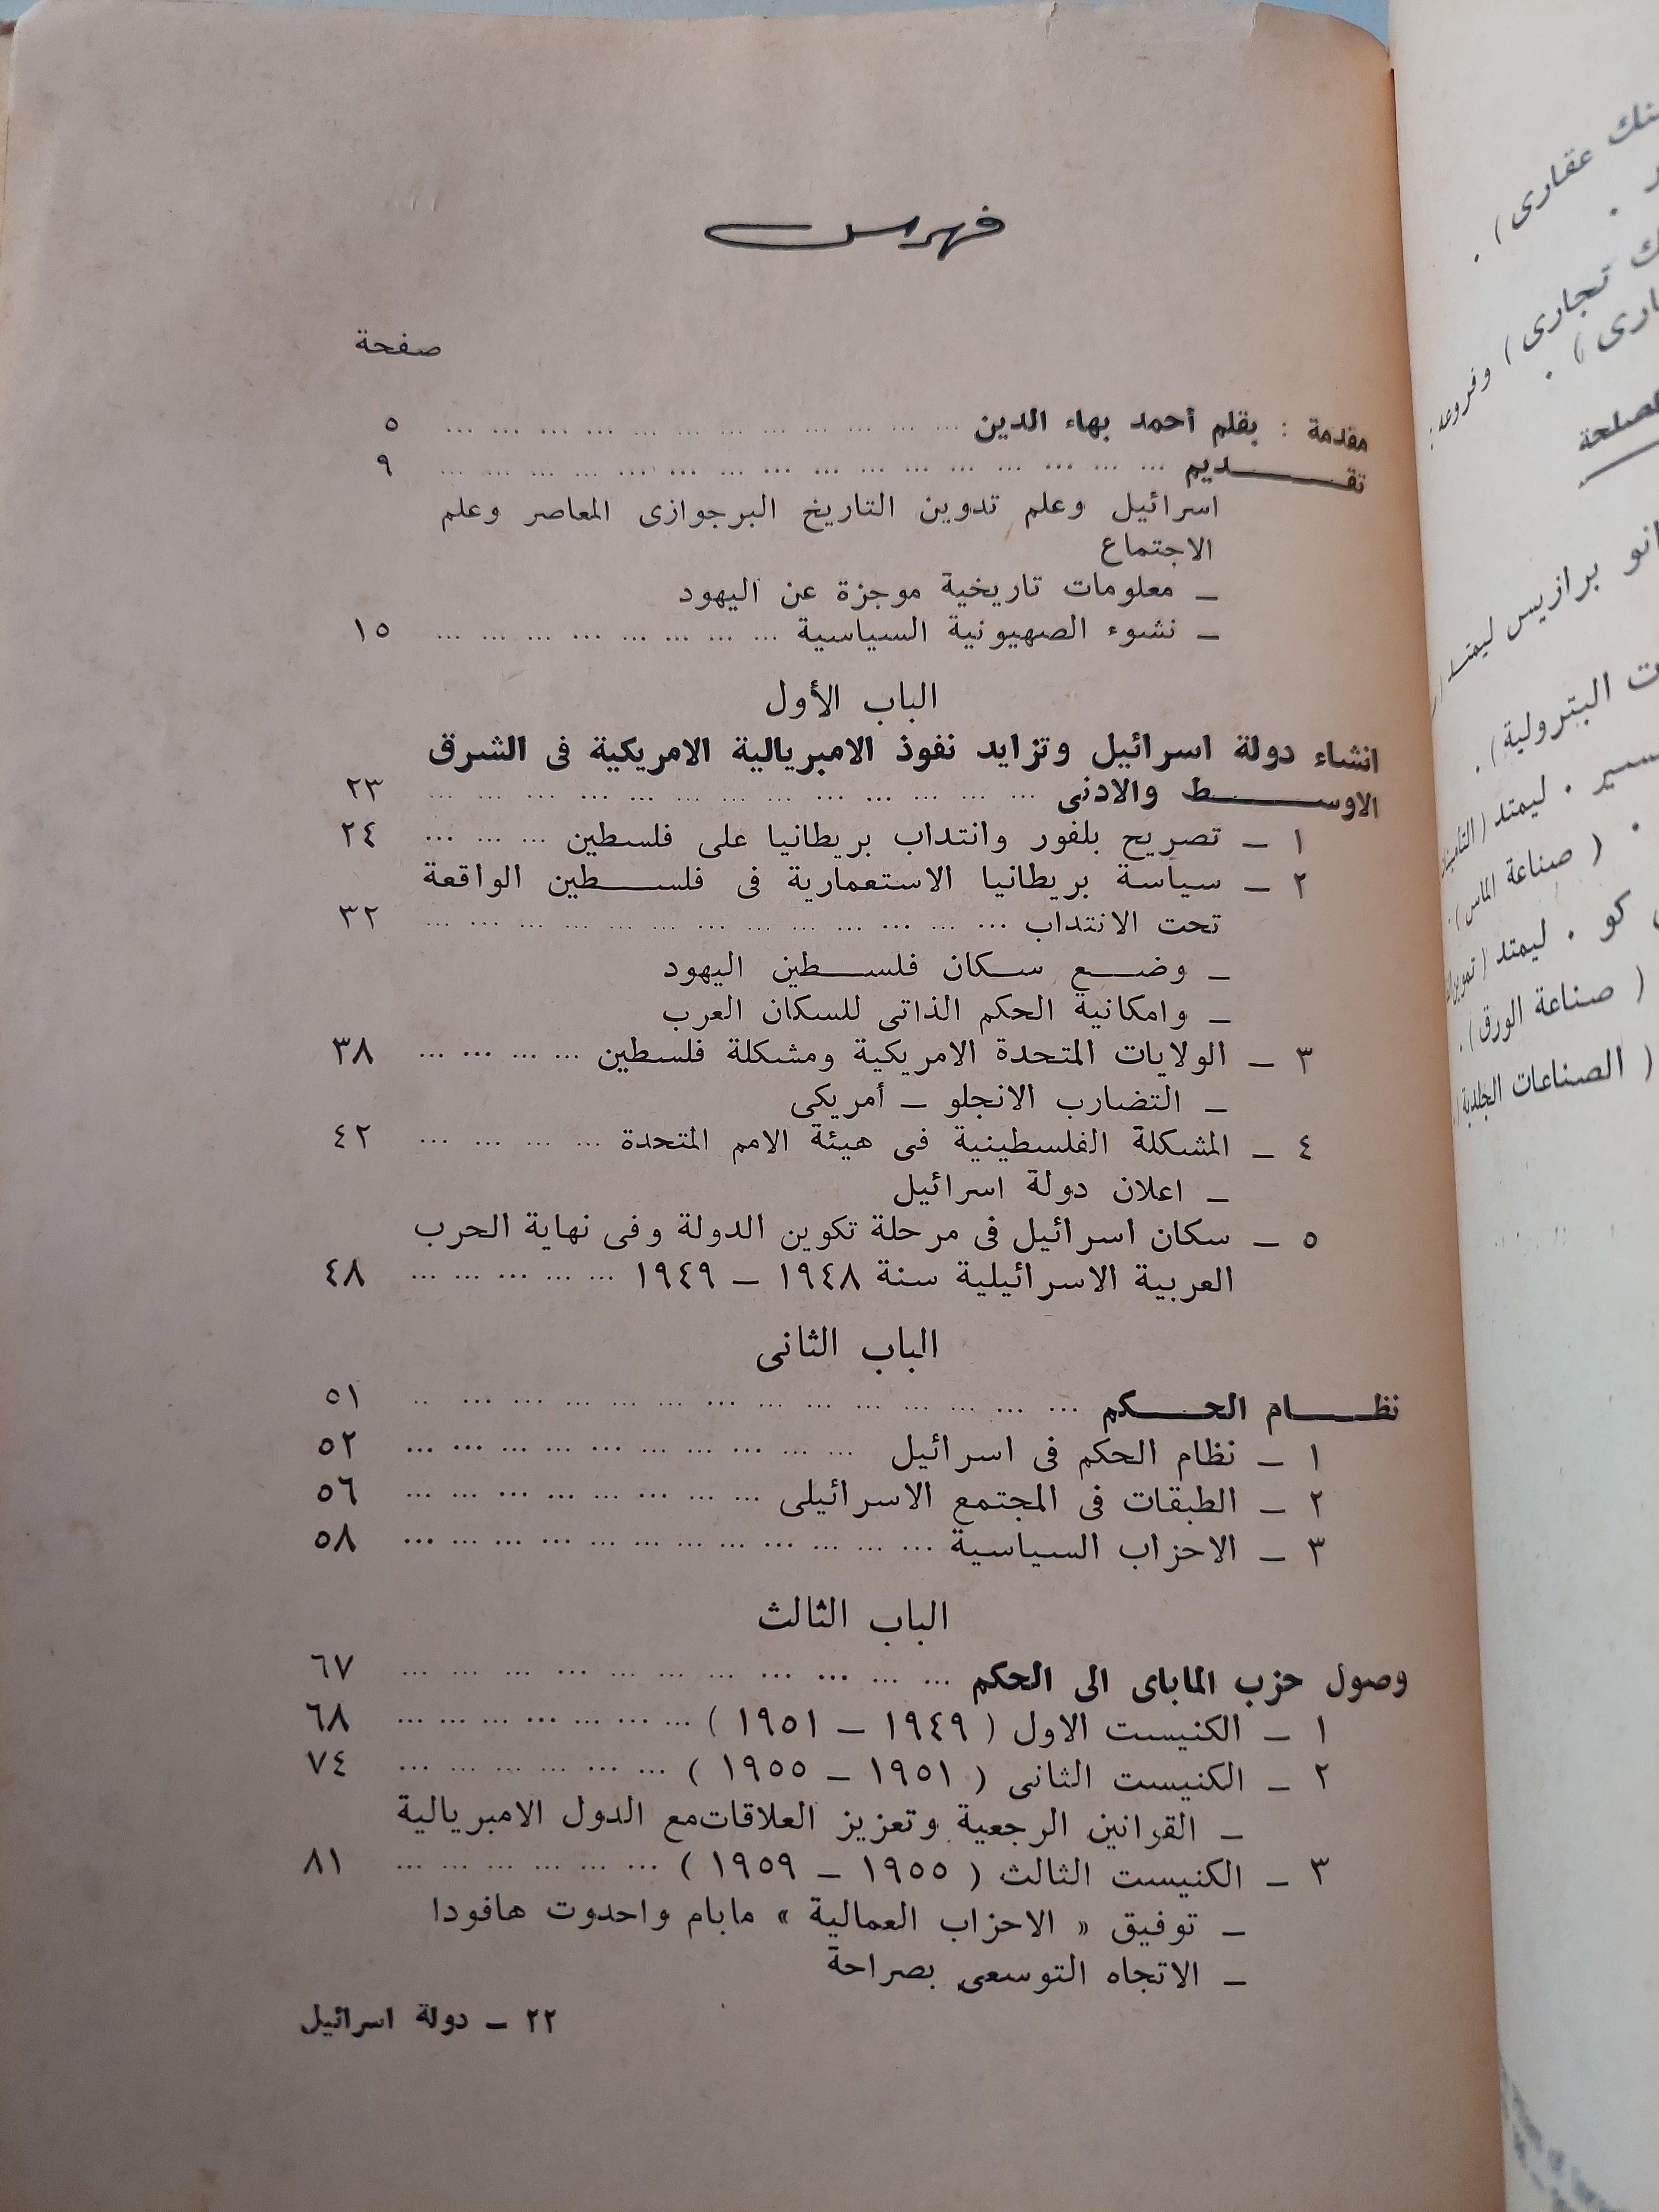 فهرس
صفحة
مقدمة : بقلم أحمد بهاء الدين ... ... ... ... ... ... ... ... ... ... ... ٥
تقـــــديم ... ... ... ... ... ... ... ... ... ... ... ... ... ... ... ... ٩
اسرائيل وعلم تدوين التاريخ البرجوازى المعاصر وعلم
الاجتماع
ـ معلومات تاريخية موجزة عن اليهود
ـ نشوء الصهيونية السياسية ... ... ... ... ... ... ... ... ١٥
الباب الأول
انشاء دولة اسرائيل وتزايد نفوذ الامبريالية الامريكية فى الشرق
الاوســـــط والادنى ... ... ... ... ... ... ... ... ... ... ... ... ... ٢٣
١ ـ تصريح بلفور وانتداب بريطانيا على فلسطين ... ... ... ٢٤
٢ ـ سياسة بريطانيا الاستعمارية فى فلســـطين الواقعة
تحت الانتداب ... ... ... ... ... ... ... ... ... ... ... ... ... ٣٢
ـ وضـــع ســكان فلســـطين اليهود
ـ وامكانية الحكم الذاتى للسكان العرب
٣ ـ الولايات المتحدة الامريكية ومشكلة فلسطين ... ... ... ... ٣٨
ـ التضارب الانجلو ـ أمريكى
٤ ـ المشكلة الفلسطينية فى هيئة الامم المتحدة ... ... ... ... ٤٢
ـ اعلان دولة اسرائيل
٥ ـ سكان اسرائيل فى مرحلة تكوين الدولة وفى نهاية الحرب
العربية الاسرائيلية سنة ١٩٤٨ ـ ١٩٤٩ ... ... ... ... ... ٤٨
الباب الثانى
نظـــــام الحـــــكم ... ... ... ... ... ... ... ... ... ... ... ... ... ... .. ٥١
١ ـ نظام الحكم فى اسرائيل ... ... ... ... ... ... ... ... ... ... ٥٢
٢ ـ الطبقات فى المجتمع الاسرائيلى ... ... ... ... ... ... ... ... ٥٦
٣ ـ الاحزاب السياسية ... ... ... ... ... ... ... ... ... ... ... ... ٥٨
الباب الثالث
وصول حزب الماباى الى الحكم ... ... ... ... ... ... ... ... ... ... ... ٦٧
١ ـ الكنيست الاول ( ١٩٤٩ ـ ١٩٥١ ) ... ... ... ... ... ... ... ٦٨
٢ ـ الكنيست الثانى ( ١٩٥١ ـ ١٩٥٥ ) ... ... ... ... ... ... ٧٤
ـ القرانين الرجعية وتعزيز العلاقات مع الدول الامبريالية
٣ ـ الكنيست الثالث ( ١٩٥٥ ـ ١٩٥٩ ) ... ... ... ... ... ... ٨١
ـ توفيق « الاحزاب العمالية » مابام واحدوت هافودا
ـ الاتجاه التوسعى بصراحة
٢٢ ـ دولة اسرائيل
عقارى ) .
تجارى ) وفروعه :
برازيس ليمتد
البترولية) .
. ليمتد
( صناعة الماس ) .
كو . ليمتد
( صناعة الورق ) .
( الصناعات الجلدية